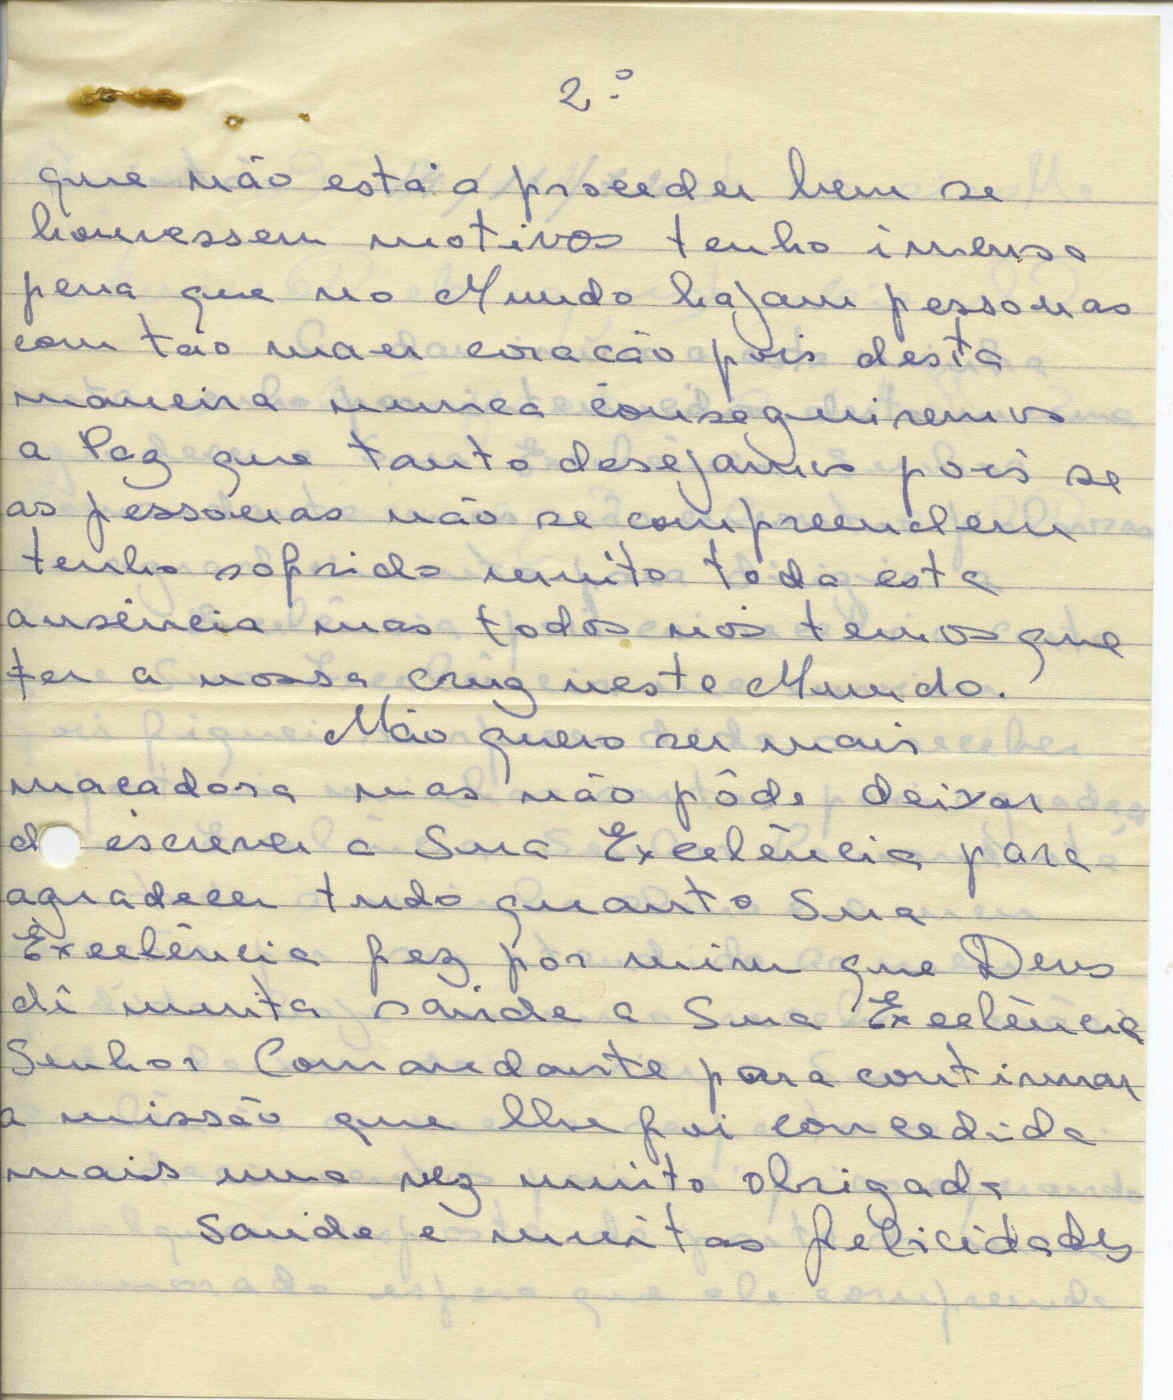 2.º
que não está a proceder bem se
houvessem motivos tenho imenso
pena que no Mundo hajam pessouas
com tão mau coração pois desta
maneira nunca conseguiremos
a Paz que tanto desejamos pois se
as pessouas não se compreendem
tenho sofrido muito toda esta
ausência mas todos nós temos que
ter a nossa cruz neste Mundo.
Não quero ser mais
maçadora mas não pôde deixar
d escrever a Sua Excelência para
agradecer tudo quanto Sua
Excelência fez por mim que Deus
dê muita saúde a Sua Excelência
Senhor Comandante para continuar
a missão que lhe foi concedida
mais uma vez muito obrigada
Saúde e muitas felicidades